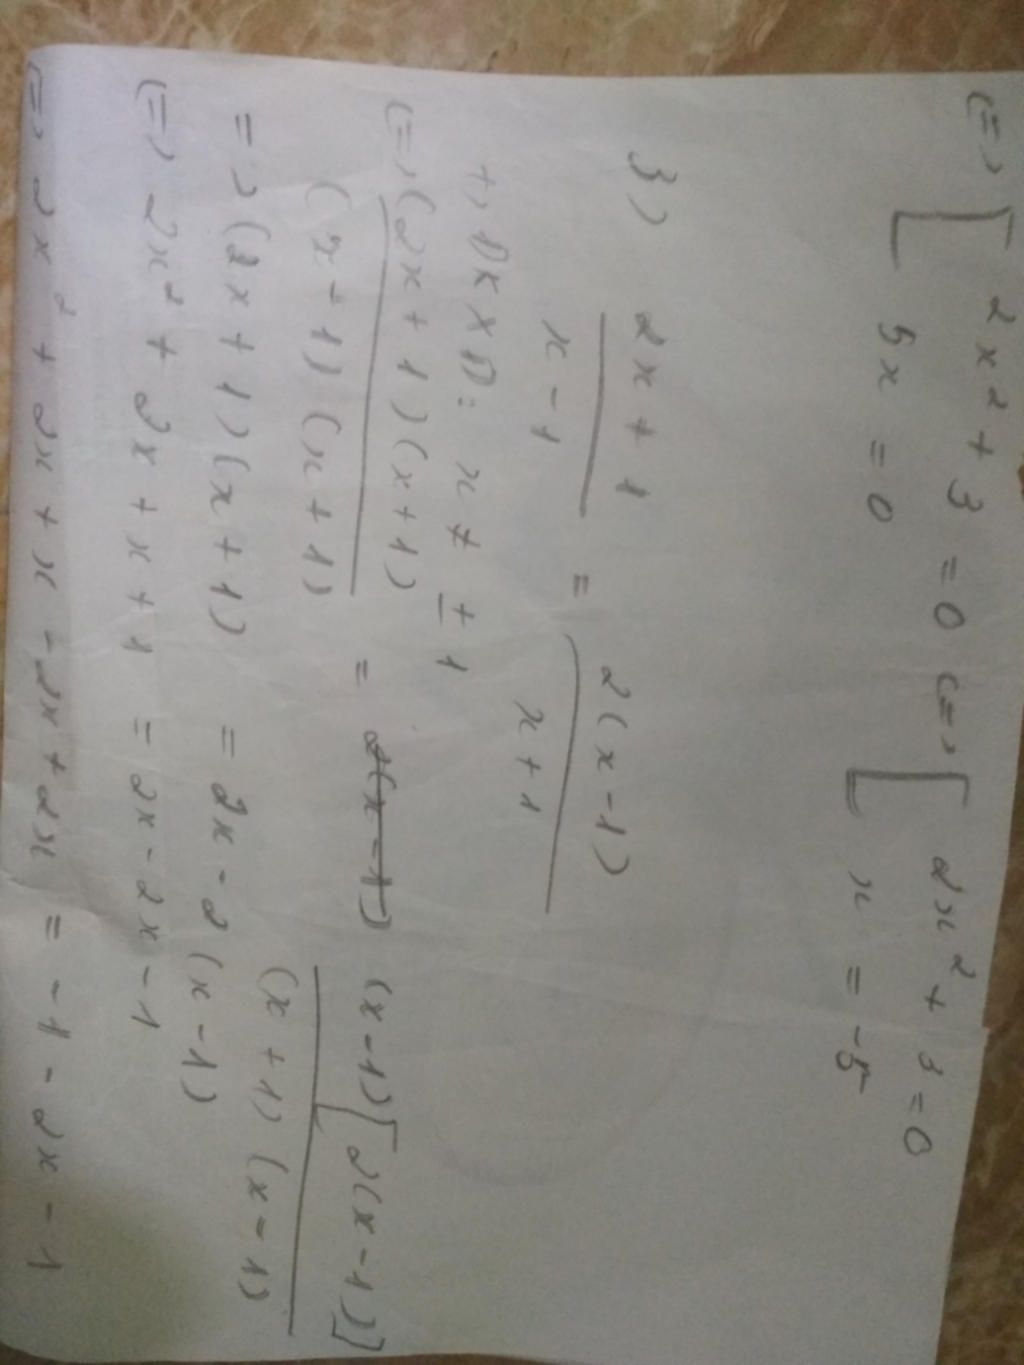 (=) [ 2x² + 3 = 0 (=) [ 2x² + 3 = 0
5x = 0 x = -5
3) 2x + 1 / x - 1 = 2(x - 1) / x + 1
+, ĐKXĐ: x ≠ ± 1
(=) (2x + 1)(x + 1) / (x - 1)(x + 1) = 2(x - 1) (x - 1)[2(x - 1)] / (x + 1)(x - 1)
=) (2x + 1)(x + 1) = 2x - 2(x - 1)
(=) 2x² + 2x + x + 1 = 2x - 2x - 1
(=) 2x² + 2x + x - 2x + 2x = -1 - 2x - 1